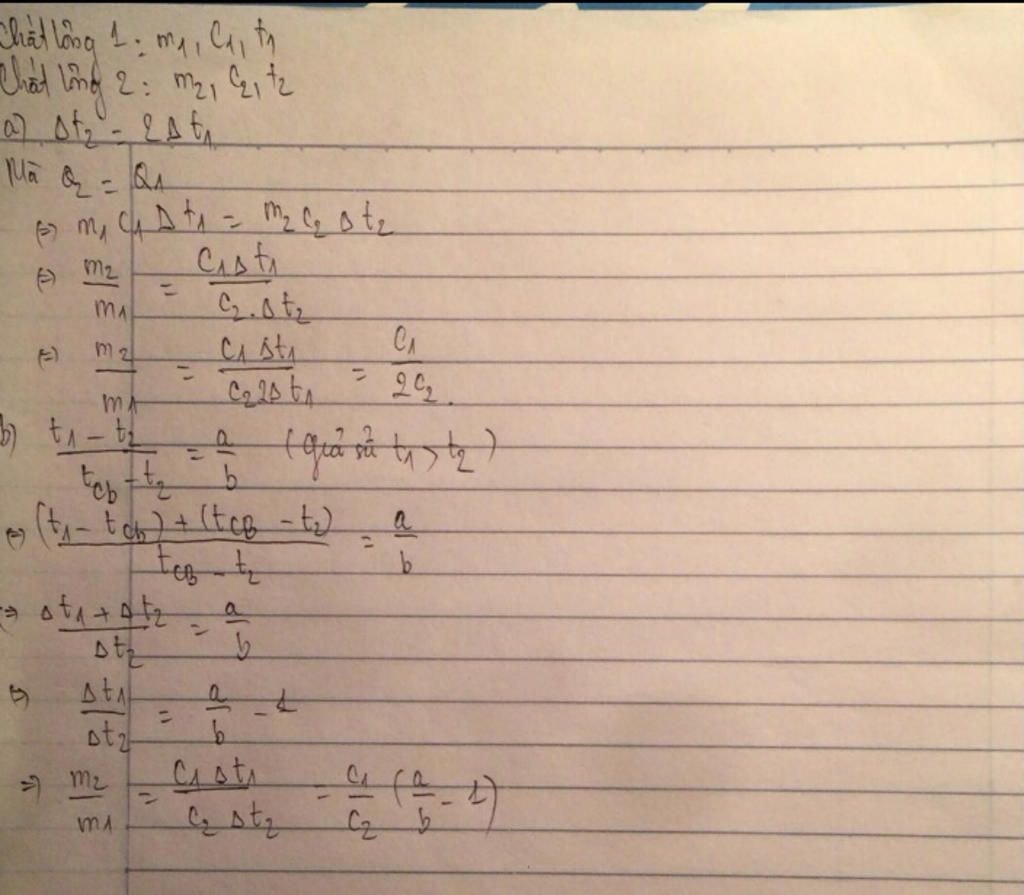 Chất lỏng 1: m1, C1, t1
Chất lỏng 2: m2, C2, t2
a) Δt2 = 2Δt1
Mà Q2 = Q1
(=) m1 C1 Δt1 = m2 C2 Δt2
(=) m2/m1 = C1Δt1/C2.Δt2
(=) m2/m1 = C1 Δt1/C2 2Δt1 = C1/2C2.
b) t1 - t2/tcb - t2 = a/b (giả sử t1 > t2)
(=) (t1 - tcb) + (tCB - t2)/tCB - t2 = a/b
(=) Δt1 + Δt2/Δt2 = a/b
(=) Δt1/Δt2 = a/b - 1
=) m2/m1 = C1 Δt1/C2 Δt2 = C1/C2 (a/b - 1)